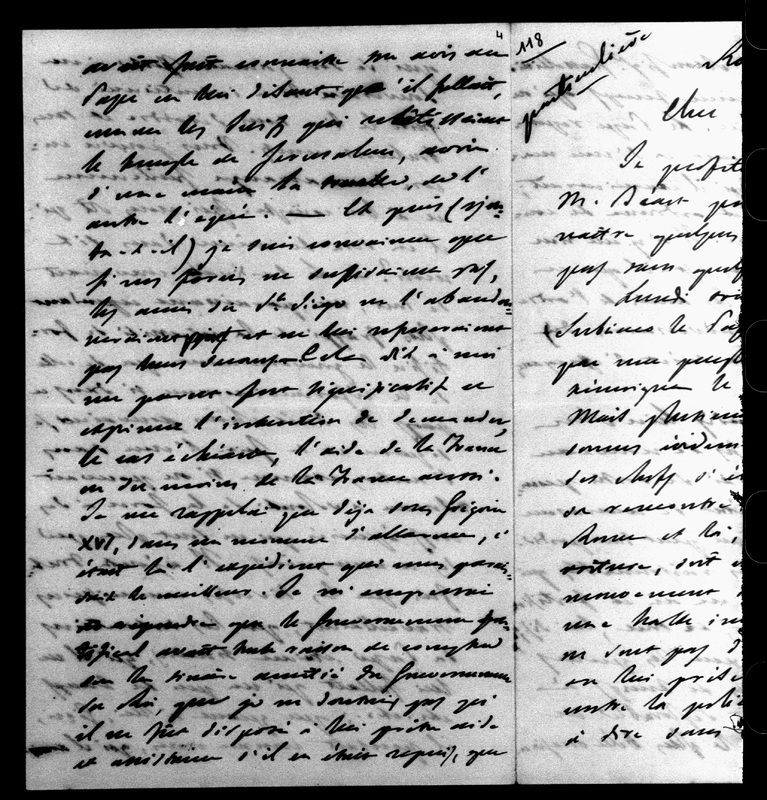 4
avait fait connaître son avis au
Pape en lui disant qu'il fallait,
comme les Juifs qui rebâtissaient
le temple de Jerusalem, avoir
d'une main la truelle, de l'
autre l'épée. — Et puis (ajou-
ta-t-il) je suis convaincu que
si nos forces ne suffisaient pas,
les amis du St Siége ne l'abandon-
neraient point et ne lui refuseraient
pas leurs secours. Cela dit à moi
me parut fort significatif et
exprimer l'intention de demander,
le cas échéant, l'aide de la France
ou du moins de la France aussi.
Je me rappelai que déja sous Grégoire
XVI, dans un moment d'allarme, c'
était là l'expédient qui nous parais-
sait le meilleur. Je m'empressai
que le Gouvernement Pon-
tifical avait toute raison de compter
sur la sincère amitié du Gouvernement
du Roi, que je ne doutais pas qu'
il ne fût disposé à lui prêter aide
et assistance s'il en était requis, que
118
particulière
Ro
Cher
Je profit
M. pou
naître quelques
pas sans quelq
Lundi
Subiaco le Pap
par une
le
Mais plusieurs
sonnes
des chefs s'é
sa rencontre
Rome et lui,
voiture, sont
mouvement
une halte
ne sont pas
en lui
entre la
à dire sans